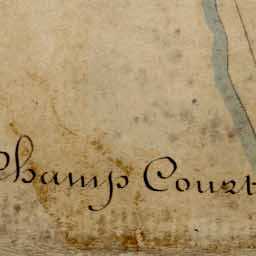 Champ Court